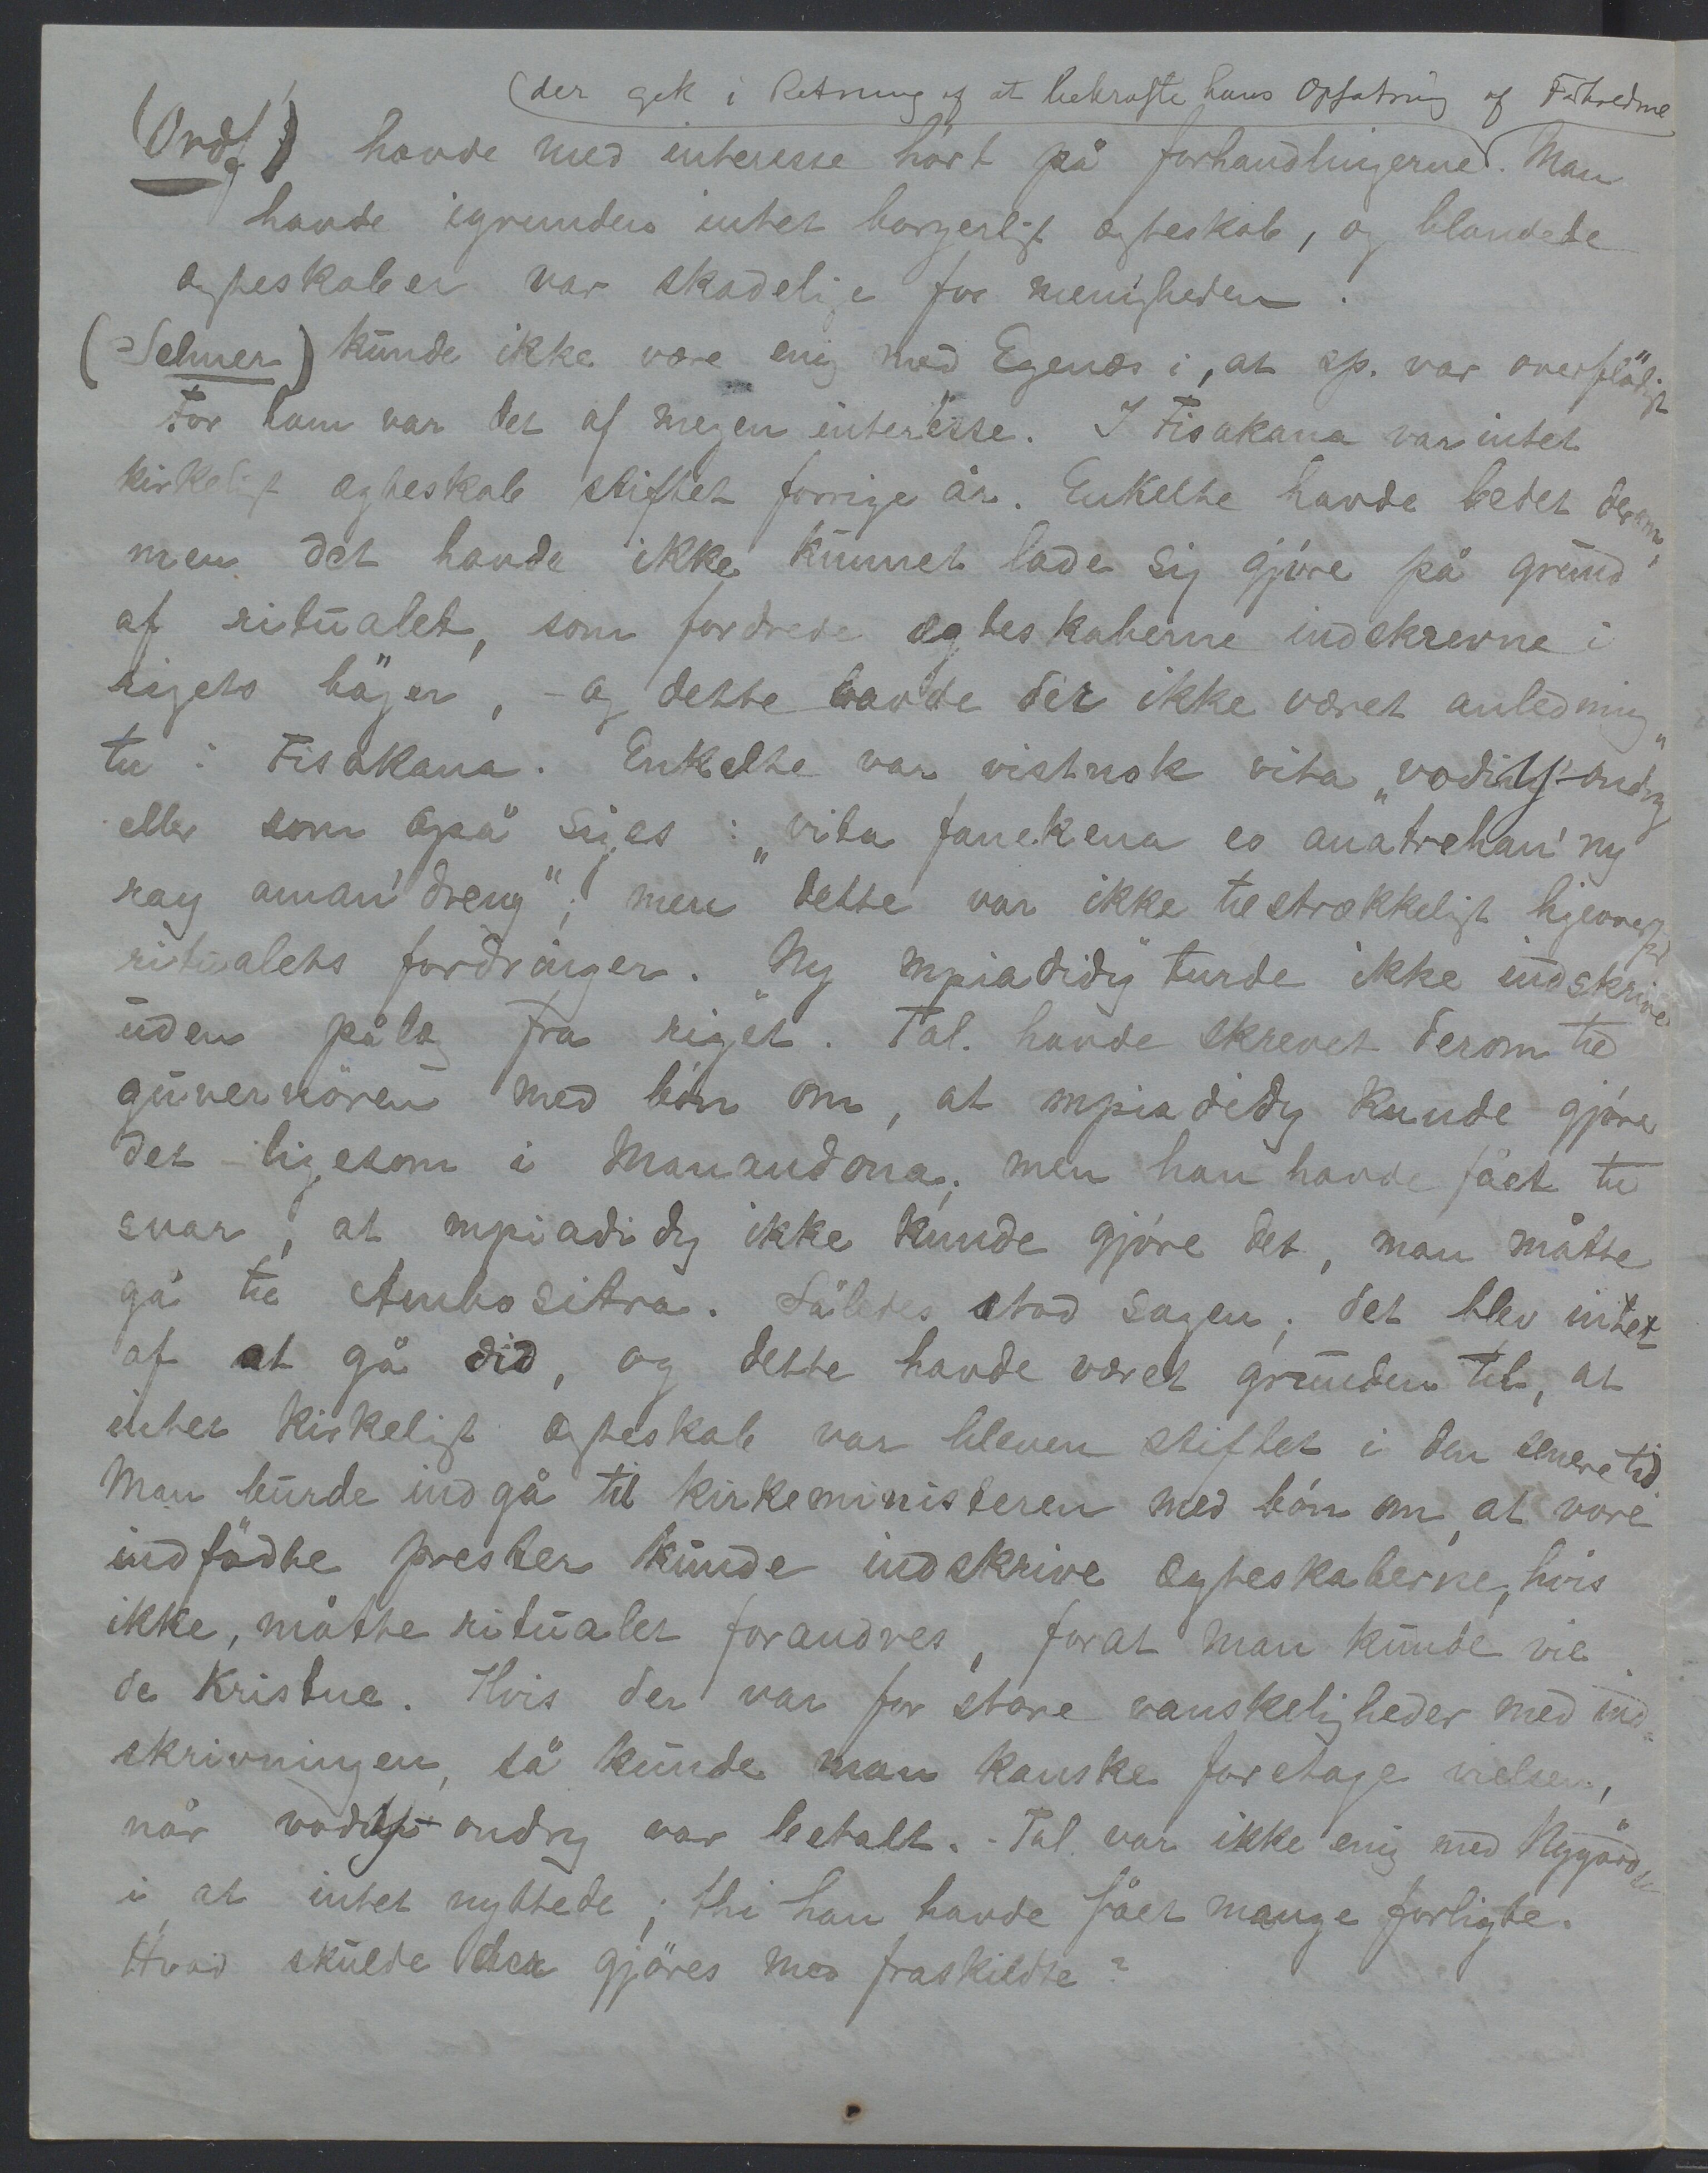 (der gik i Retning af at bekræfte hans Opfatning af
(Ordf) havde med interesse hört på forhandlingerne. Man
havde igrunden intet borgerligt ægteskab, og blandede
ægteskaber var skadelige for menigheden.
(Selmer) kunde ikke være enig med Egenæs i, at sp. var overflödigt
For ham var det af megen interesse. I Fisakana var intet
kirkeligt ægteskab stiftet forrige år. Enkelte havde bedet derom,
men det havde ikke kunnet lade sig gjøre på grund
af ritualet, som fordrede ægteskaberne indskrevne i
rigets böger, - og dette havde der ikke været anledning
til i Fisakana. Enkelte var vistnok vita „vodiny-ondry"
eller som også siges: „vita fanekena eo anatrehan' ny
ray aman' dreny"; men dette var ikke tilstrækkeligt ligeoverfor
ritualets fordringer. Ny „mpiadidy" turde ikke indskrive
uden pålæg fra riget. Tal. havde skrevet derom til
guvernören med bön om, at mpiadidy kunde gjöre
det ligesom i Manandona; men han havde fået til
svar, at mpiadidy ikke kunde gjöre det, man måtte
gå til Ambositra. Således stod sagen; det blev intet
af at gå did, og dette havde været grunden til, at
intet kirkeligt ægteskab var bleven stiftet i den senere tid.
Man burde indgå til kirkeministeren med bön om, at vore
indfödte prester kunde indskrive ægteskaberne, hvis
ikke, måtte ritualet forandres, forat man kunde vie
de kristne. Hvis der var for store vanskeligheder med ind-
skrivningen, så kunde man kanske foretage vielsen,
når vodiny-ondry var betalt. - Tal. var ikke enig med
i, at intet nyttede; thi han havde fået mange forligte.
Hvad skulde der gjöres med fraskildte?